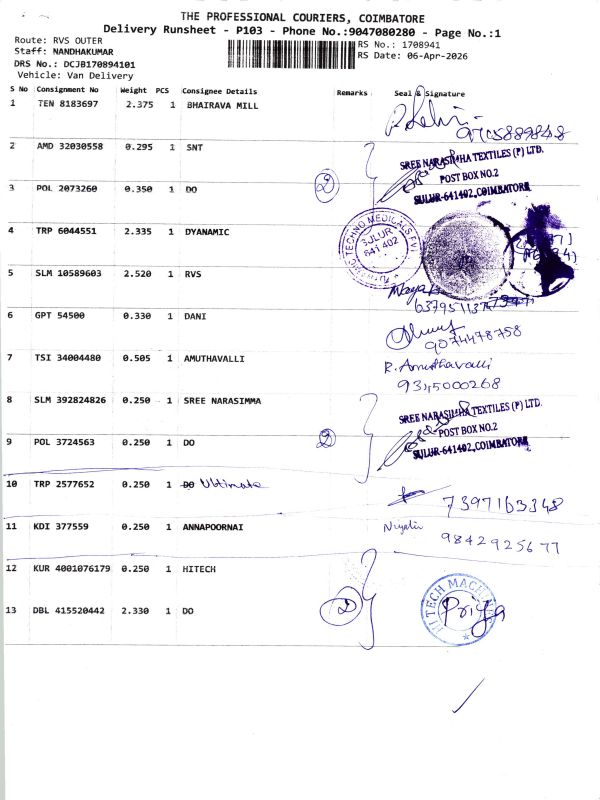 THE PROFESSIONAL COURIERS, COIMBATORE
Delivery Runsheet - P103 - Phone No.:9047080280 - Page No.:1
Route: RVS OUTER
Staff: NANDHAKUMAR
DRS No.: DCJB170894101
Vehicle: Van Delivery
RS No.: 1708941
RS Date: 06-Apr-2026
S No Consignment No Weight PCS Consignee Details Remarks Seal & Signature
1 TEN 8183697 2.375 1 BHAIRAVA MILL
9705889848
2 AMD 32030558 0.295 1 SNT
SREE NARASIMHA TEXTILES (P) LTD.
POST BOX NO.2
SULUR-641402, COIMBATORE
2
3 POL 2073260 0.350 1 DO
4 TRP 6044551 2.335 1 DYANAMIC
TECHNO MEDICALS PVT
SULUR
641 402
5 SLM 10589603 2.520 1 RVS
6 GPT 54500 0.330 1 DANI
9074478758
7 TSI 34004480 0.505 1 AMUTHAVALLI
R. Amuthavalli
9345000268
8 SLM 392824826 0.250 1 SREE NARASIMMA
SREE NARASIMHA TEXTILES (P) LTD.
POST BOX NO.2
SULUR-641402, COIMBATORE
2
9 POL 3724563 0.250 1 DO
10 TRP 2577652 0.250 1 DO Ultimate
7397163348
11 KDI 377559 0.250 1 ANNAPOORNAI
9842925677
12 KUR 4001076179 0.250 1 HITECH
13 DBL 415520442 2.330 1 DO
2
HI TECH
Priya